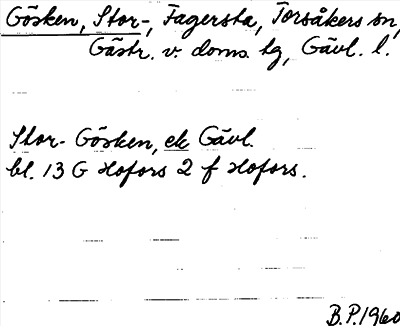 Gösken, Stor-, Fagersta, Torsåkers sn,
Gästr. v. doms. tg, Gävl. l.
Stor-Gösken, ek Gävl.
bl. 13 G Hofors 2 f Hofors.
B.P. 1960